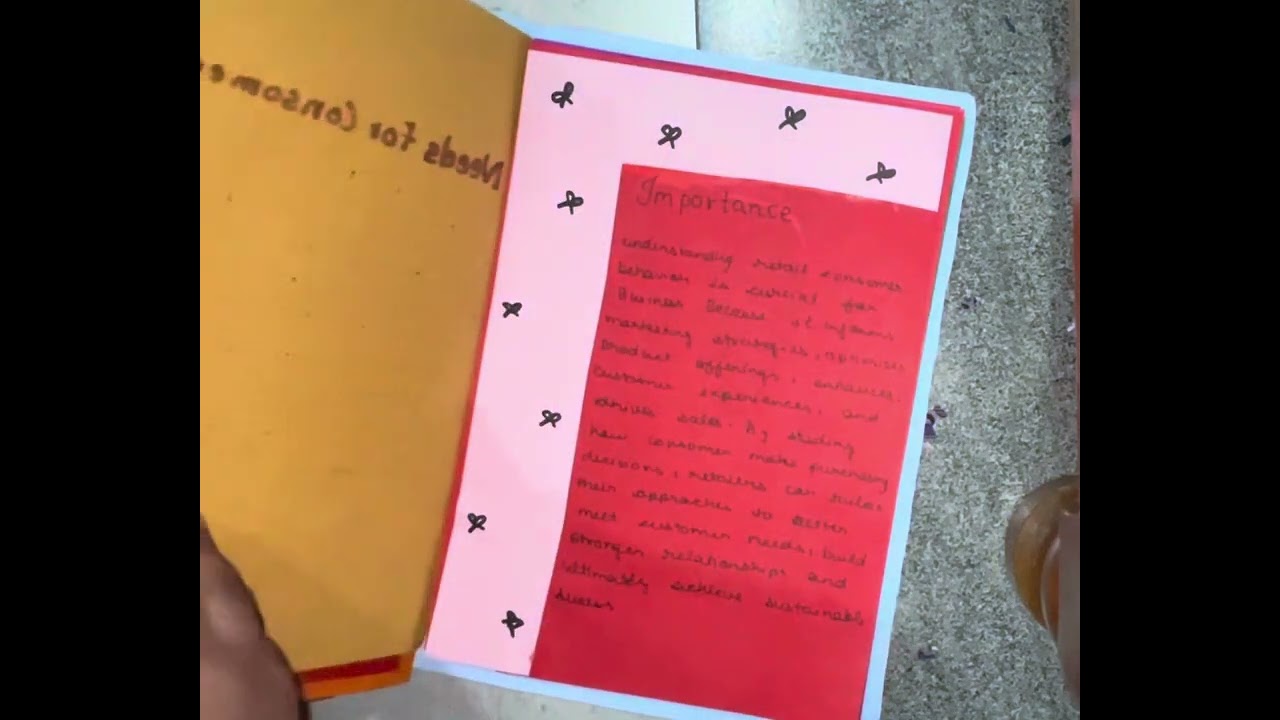 Needs for Consome
Importance
understandig retail consomer
behavior is curcial for
Business Because it informs
marketing strategies, optimises
product offerings, enhances
customer experiences, and
drives sales. By studing
how consomer make purchasing
decisions, retailers can tailor
their approaches to better
meet customer needs, build
stronger relationships and
ultimately achieve sustainable